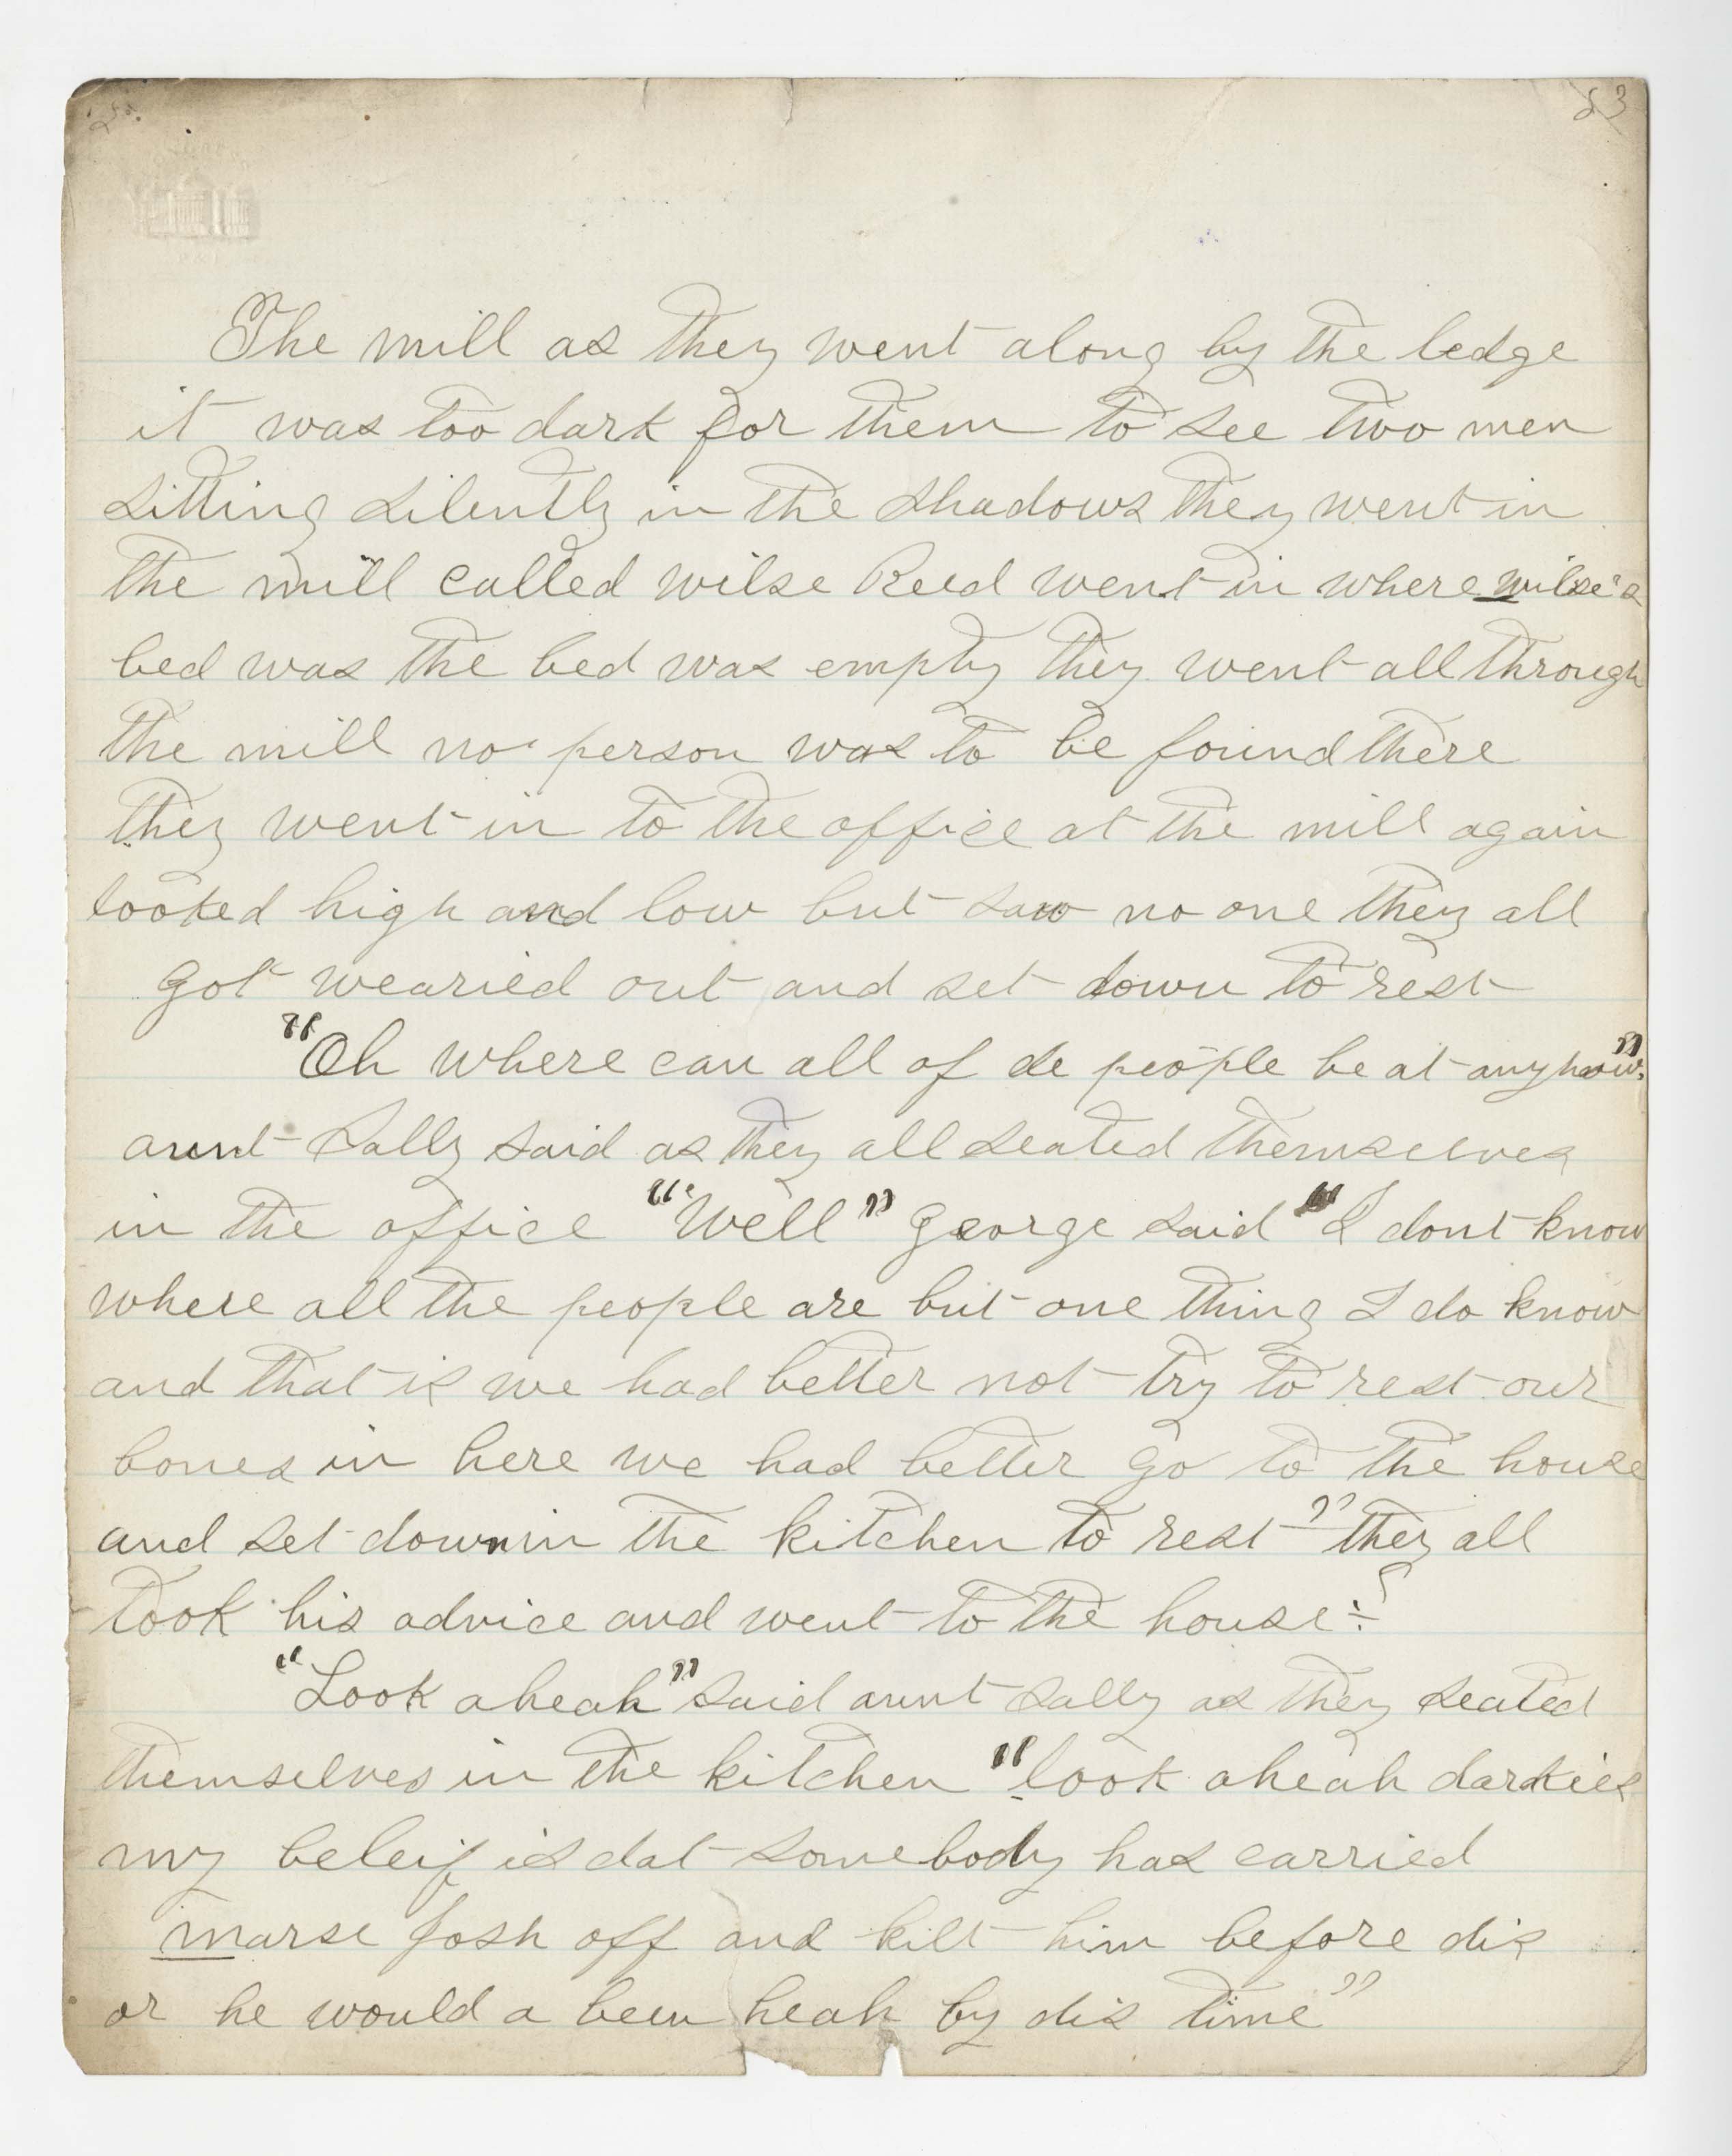 83
The mill as they went along by the ledge
it was too dark for them to see two men
sitting silently in the shadows they went in
the mill called wilse Reed went in where wilse's
bed was the bed was empty they went all through
the mill no person was to be found there
they went in to the office at the mill again
looked high and low but saw no one they all
got wearied out and set down to rest
"Oh where can all of de people be at anyhow"
aunt Sally said as they all seated themselves
in the office "Well" george said "I dont know
where all the people are but one thing I do know
and that is we had better not try to rest our
bones in here we had better go to the house
and set down in the kitchen to rest" they all
took his advice and went to the house:
"Look aheah" said aunt Sally as they seated
themselves in the kitchen "look aheah darkies
my beleif is dat somebody has carried
marse Josh off and kilt him before dis
or he would a been heah by dis time"